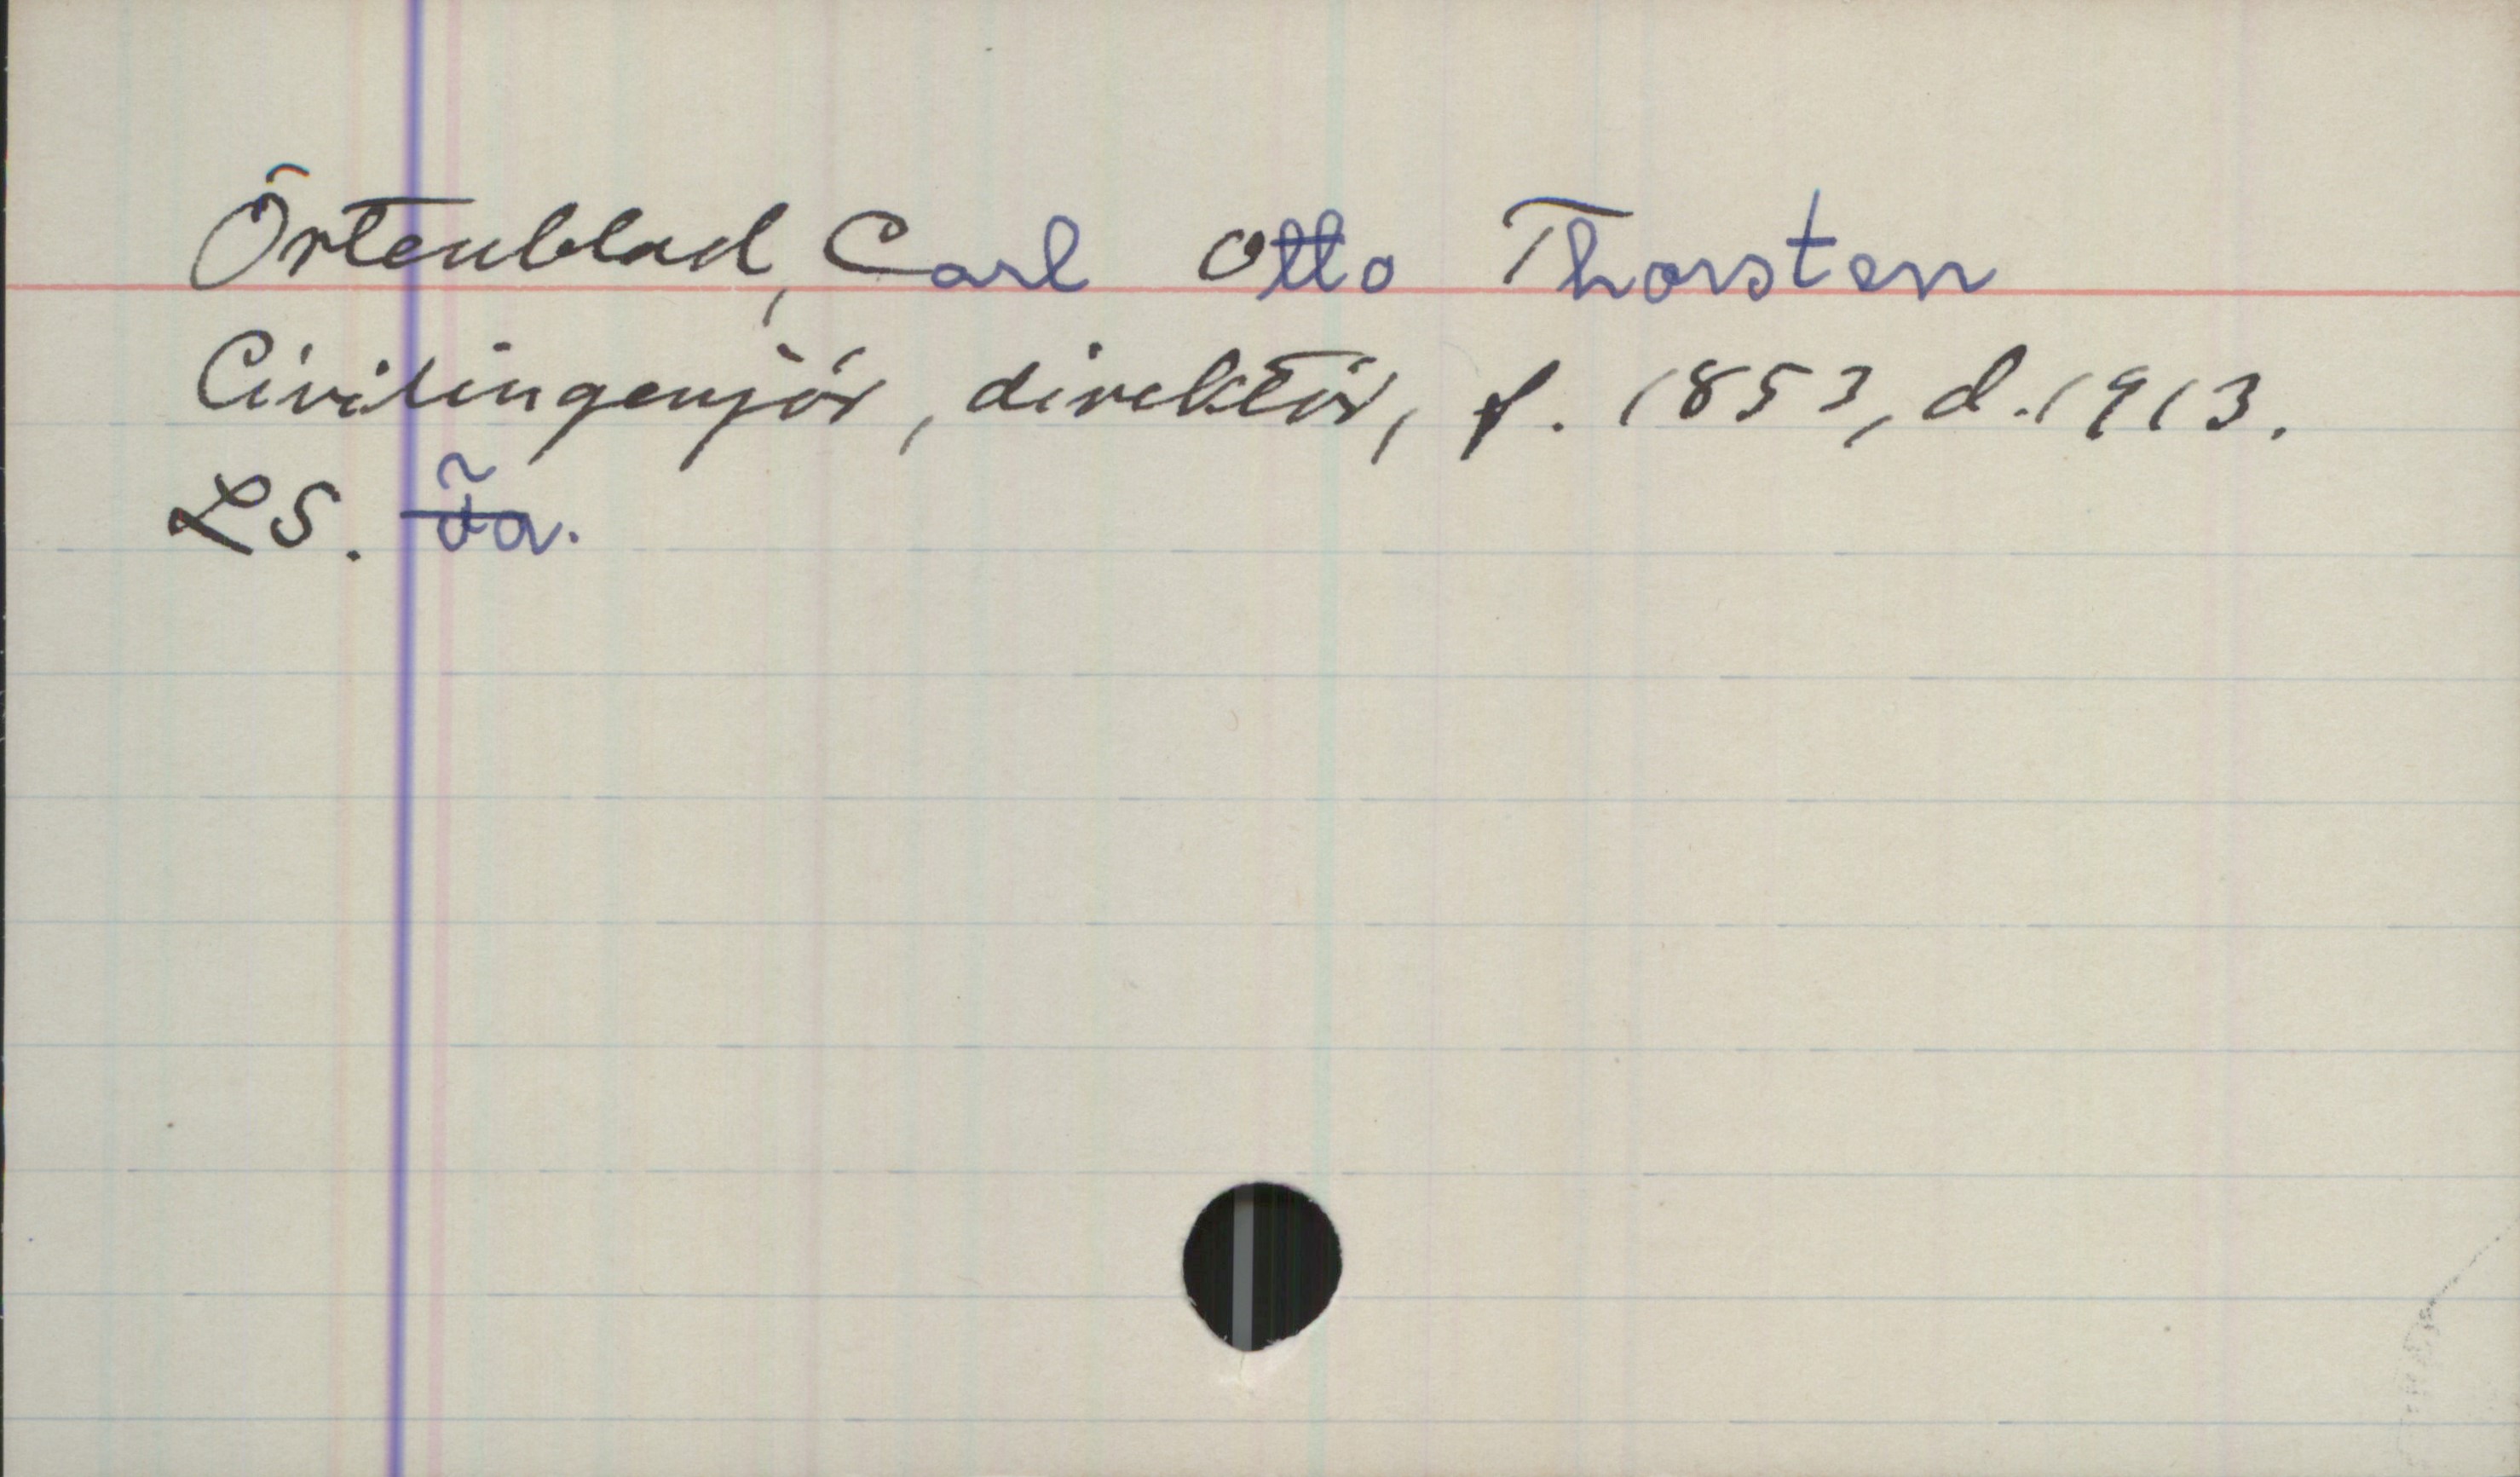 Örtenblad, Carl Otto Thorsten
Civilingenjör, direktör, f. 1853, d. 1913.
LS.